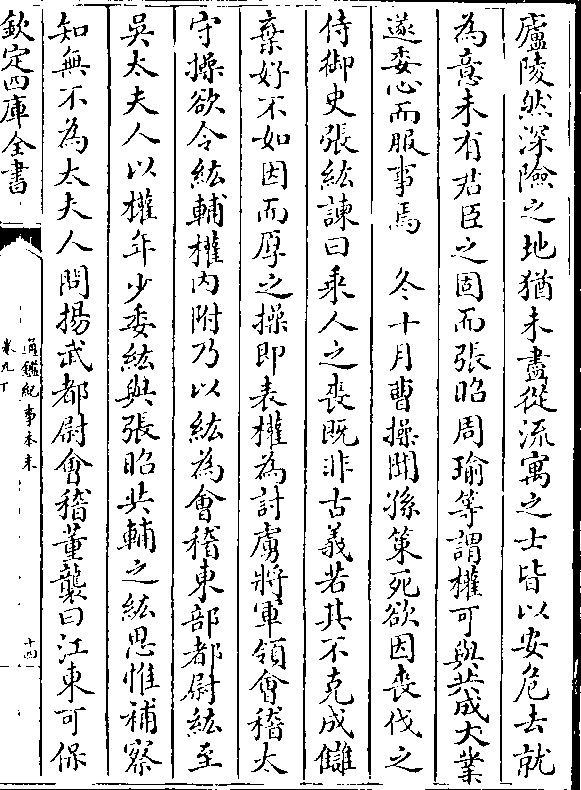 廬陵然深險之地猶未盡從流寓之士皆以安危去就
為意未有君臣之固而張昭周瑜等謂權可與共成大業
遂委心而服事焉　冬十月曹操聞孫策死欲因喪伐之
侍御史張紘諫曰乘人之喪既非古義若其不克成讎
棄好不如因而厚之操即表權為討虜將軍領會稽太
守操欲令紘輔權內附乃以紘為會稽東部都尉紘至
吳太夫人以權年少委紘與張昭共輔之紘思惟補察
知無不為太夫人問揚武都尉會稽董襲曰江東可保
欽定四庫全書
通鑑紀事本末
卷九下
十四